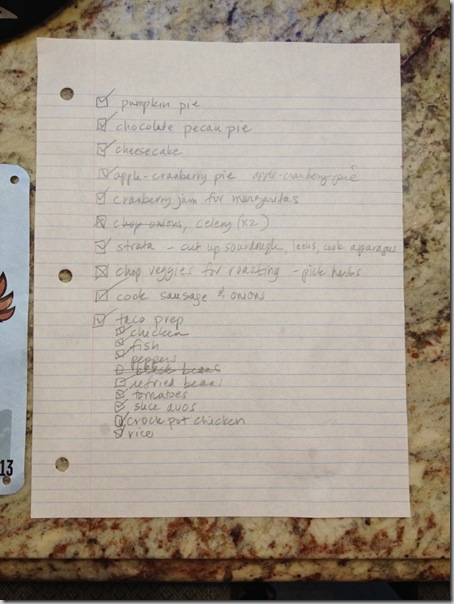 pumpkin pie
chocolate pecan pie
cheesecake
apple-cranberry pie apple-cranberry pie
cranberry jam for margaritas
chop onions, celery (x2)
strata - cut up sourdough, leeks, cook asparagus
chop veggies for roasting - pick herbs
cook sausage & onions
taco prep
chicken
fish
peppers
black beans
refried beans
tomatoes
slice avos
crock pot chicken
rice
13